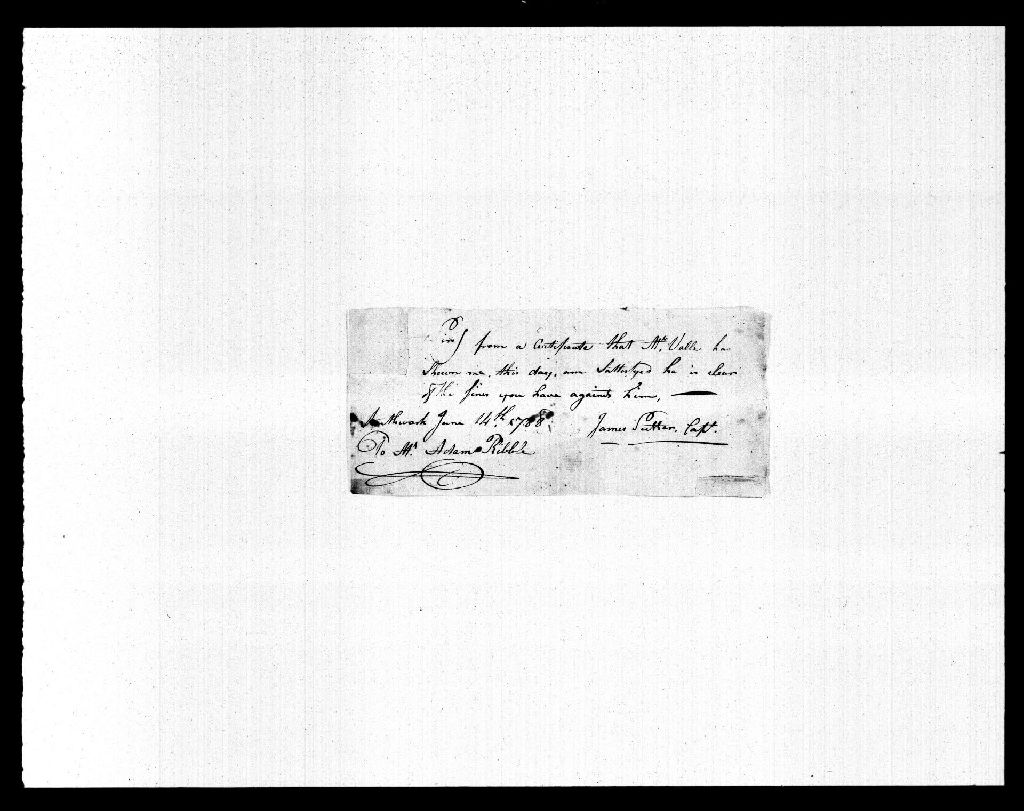 Sir from a Certificate that Mr. Valle ha
Shown me, this day, am Sattisfyed he is clear
of the fines you have againts him,
Southwark June 14th 1788. James Putter. Capt.
To Mr Adam Ribble